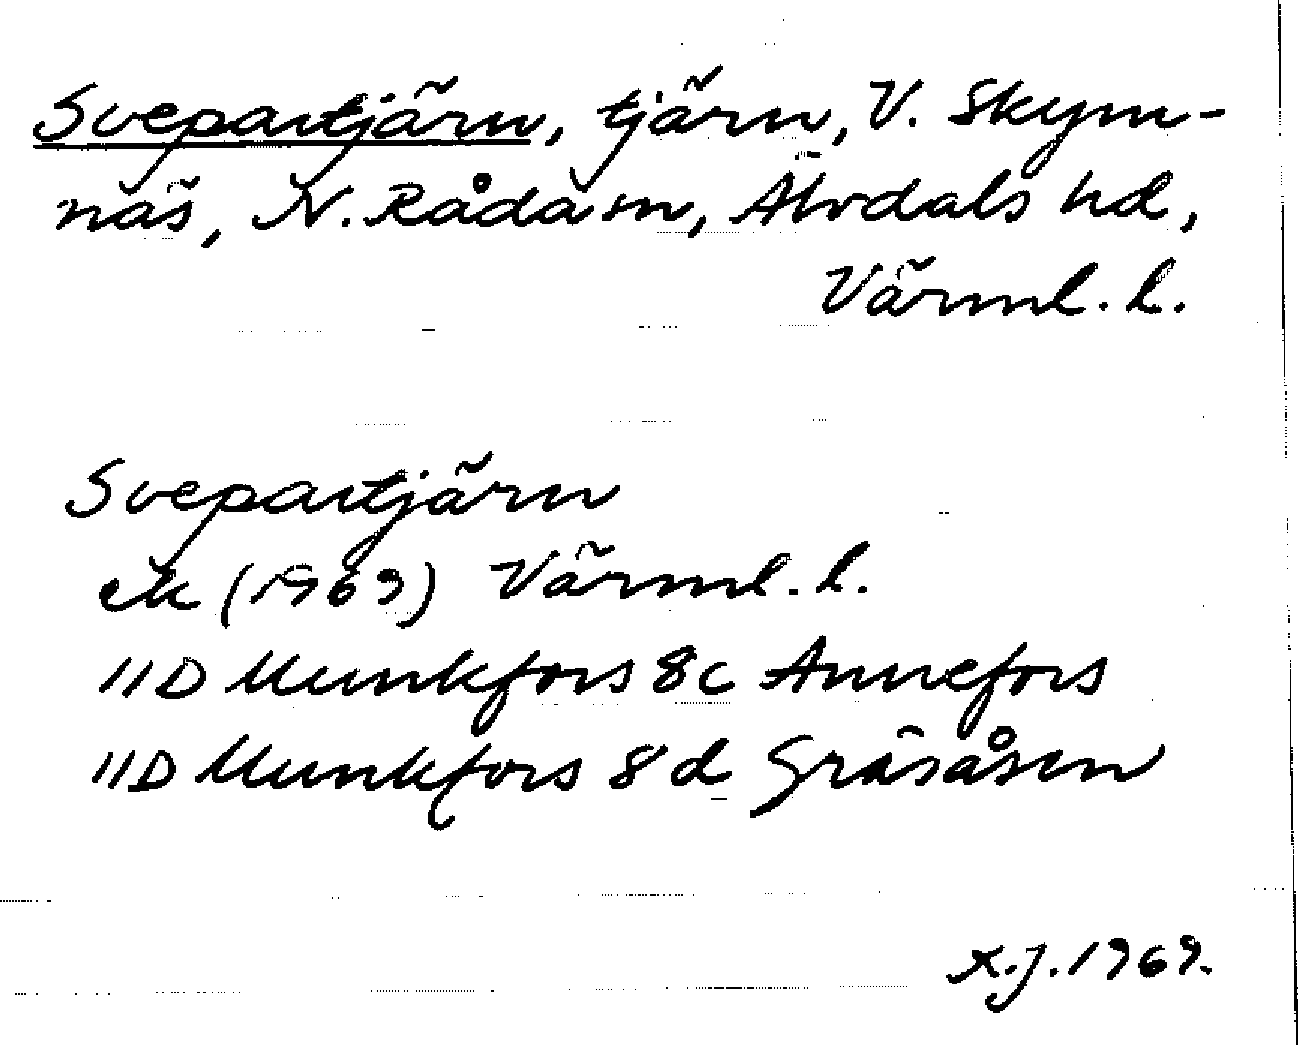 Svepartjärn, tjärn, V. Skym-
näs, N. Råda sn, Älvdals hd,
Värml. l.
Svepartjärn
ek (1969) Värml. l.
11D Munkfors 8c Annefors
11D Munkfors 8d Gräsåsen
K.J. 1969.